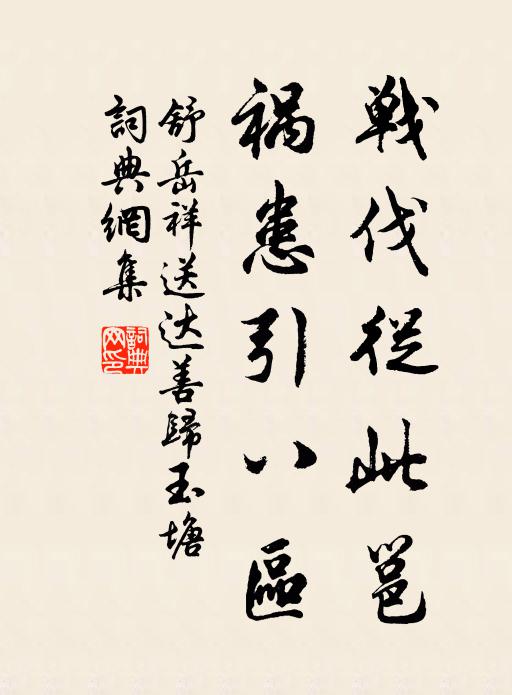 戦伐従此邕
禍患引八區
舒岳祥送达善歸玉塘
詞典網集
詞典网印